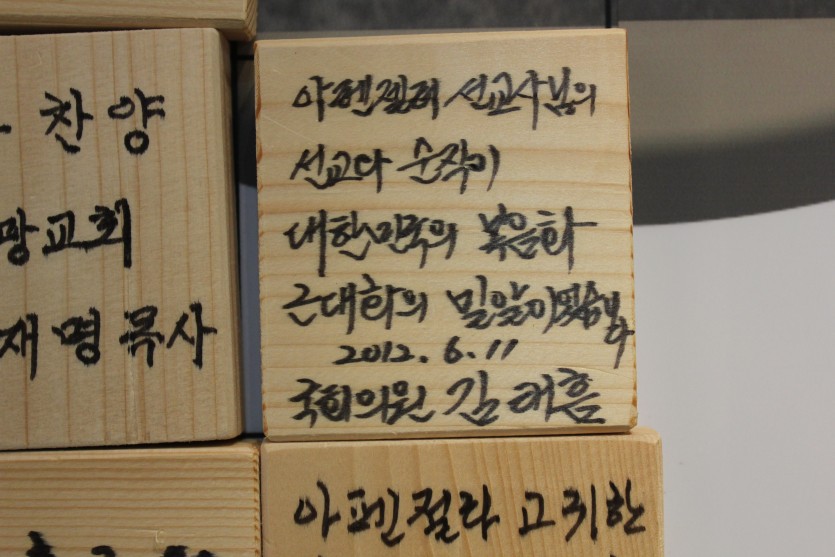 찬양
망교회
재명 목사
아펜젤러 선교사님의
선교다 순직이
대한민국의 복음화
근대화의 밀알이었습니다
2012. 6. 11
국회의원 김태흠
아펜젤라 고귀한